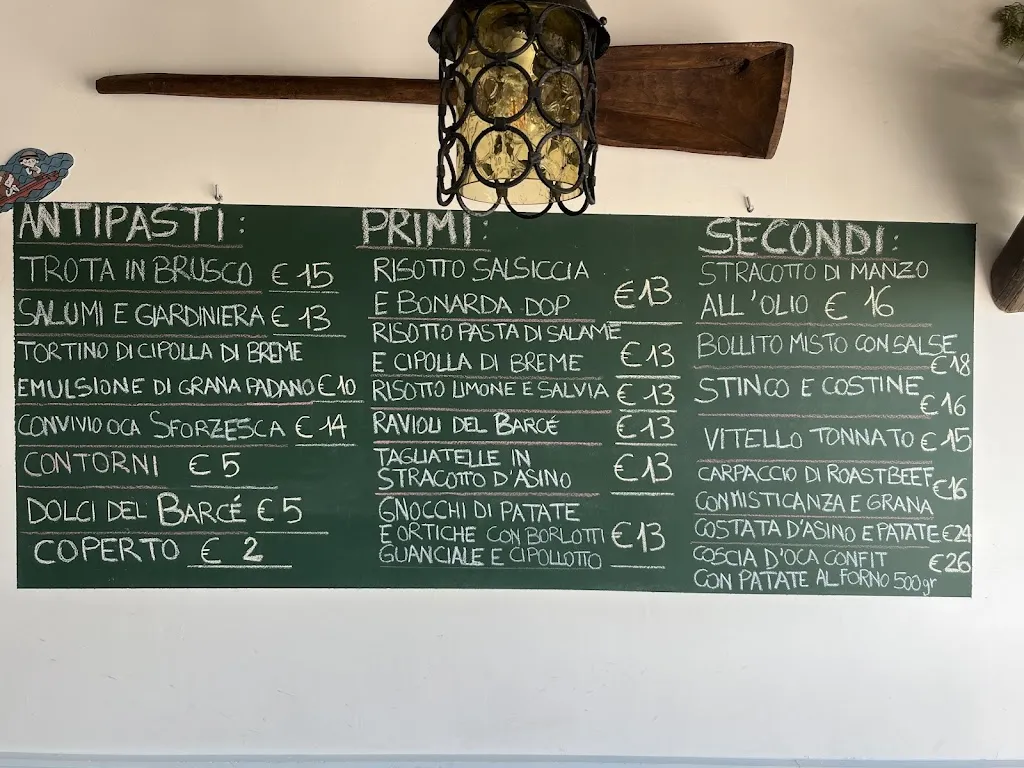 ANTIPASTI:
TROTA IN BRUSCO €15
SALUMI E GIARDINIERA € 13
TORTINO DI CIPOLLA DI BREME
EMULSIONE DI GRANA PADANO €10
CONVIVIO OCA SFORZESCA € 14
CONTORNI €5
DOLCI DEL BARCÉ €5
COPERTO € 2
PRIMI:
RISOTTO SALSICCIA
E BONARDA DOP €13
RISOTTO PASTA DI SALAME
E CIPOLLA DI BREME €13
RISOTTO LIMONE E SALVIA €13
RAVIOLI DEL BARCÉ €13
TAGLIATELLE IN
STRACOTTO D'ASINO €13
GNOCCHI DI PATATE
E ORTICHE CON BORLOTTI €13
GUANCIALE E CIPOLLOTTO
SECONDI:
STRACOTTO DI MANZO
ALL'OLIO € 16
BOLLITO MISTO CON SALSE €18
STINCO E COSTINE €16
VITELLO TONNATO €15
CARPACCIO DI ROASTBEEF €16
CON MISTICANZA E GRANA
COSTATA D'ASINO E PATATE €24
COSCIA D'OCA CONFIT €26
CON PATATE AL FORNO 500gr